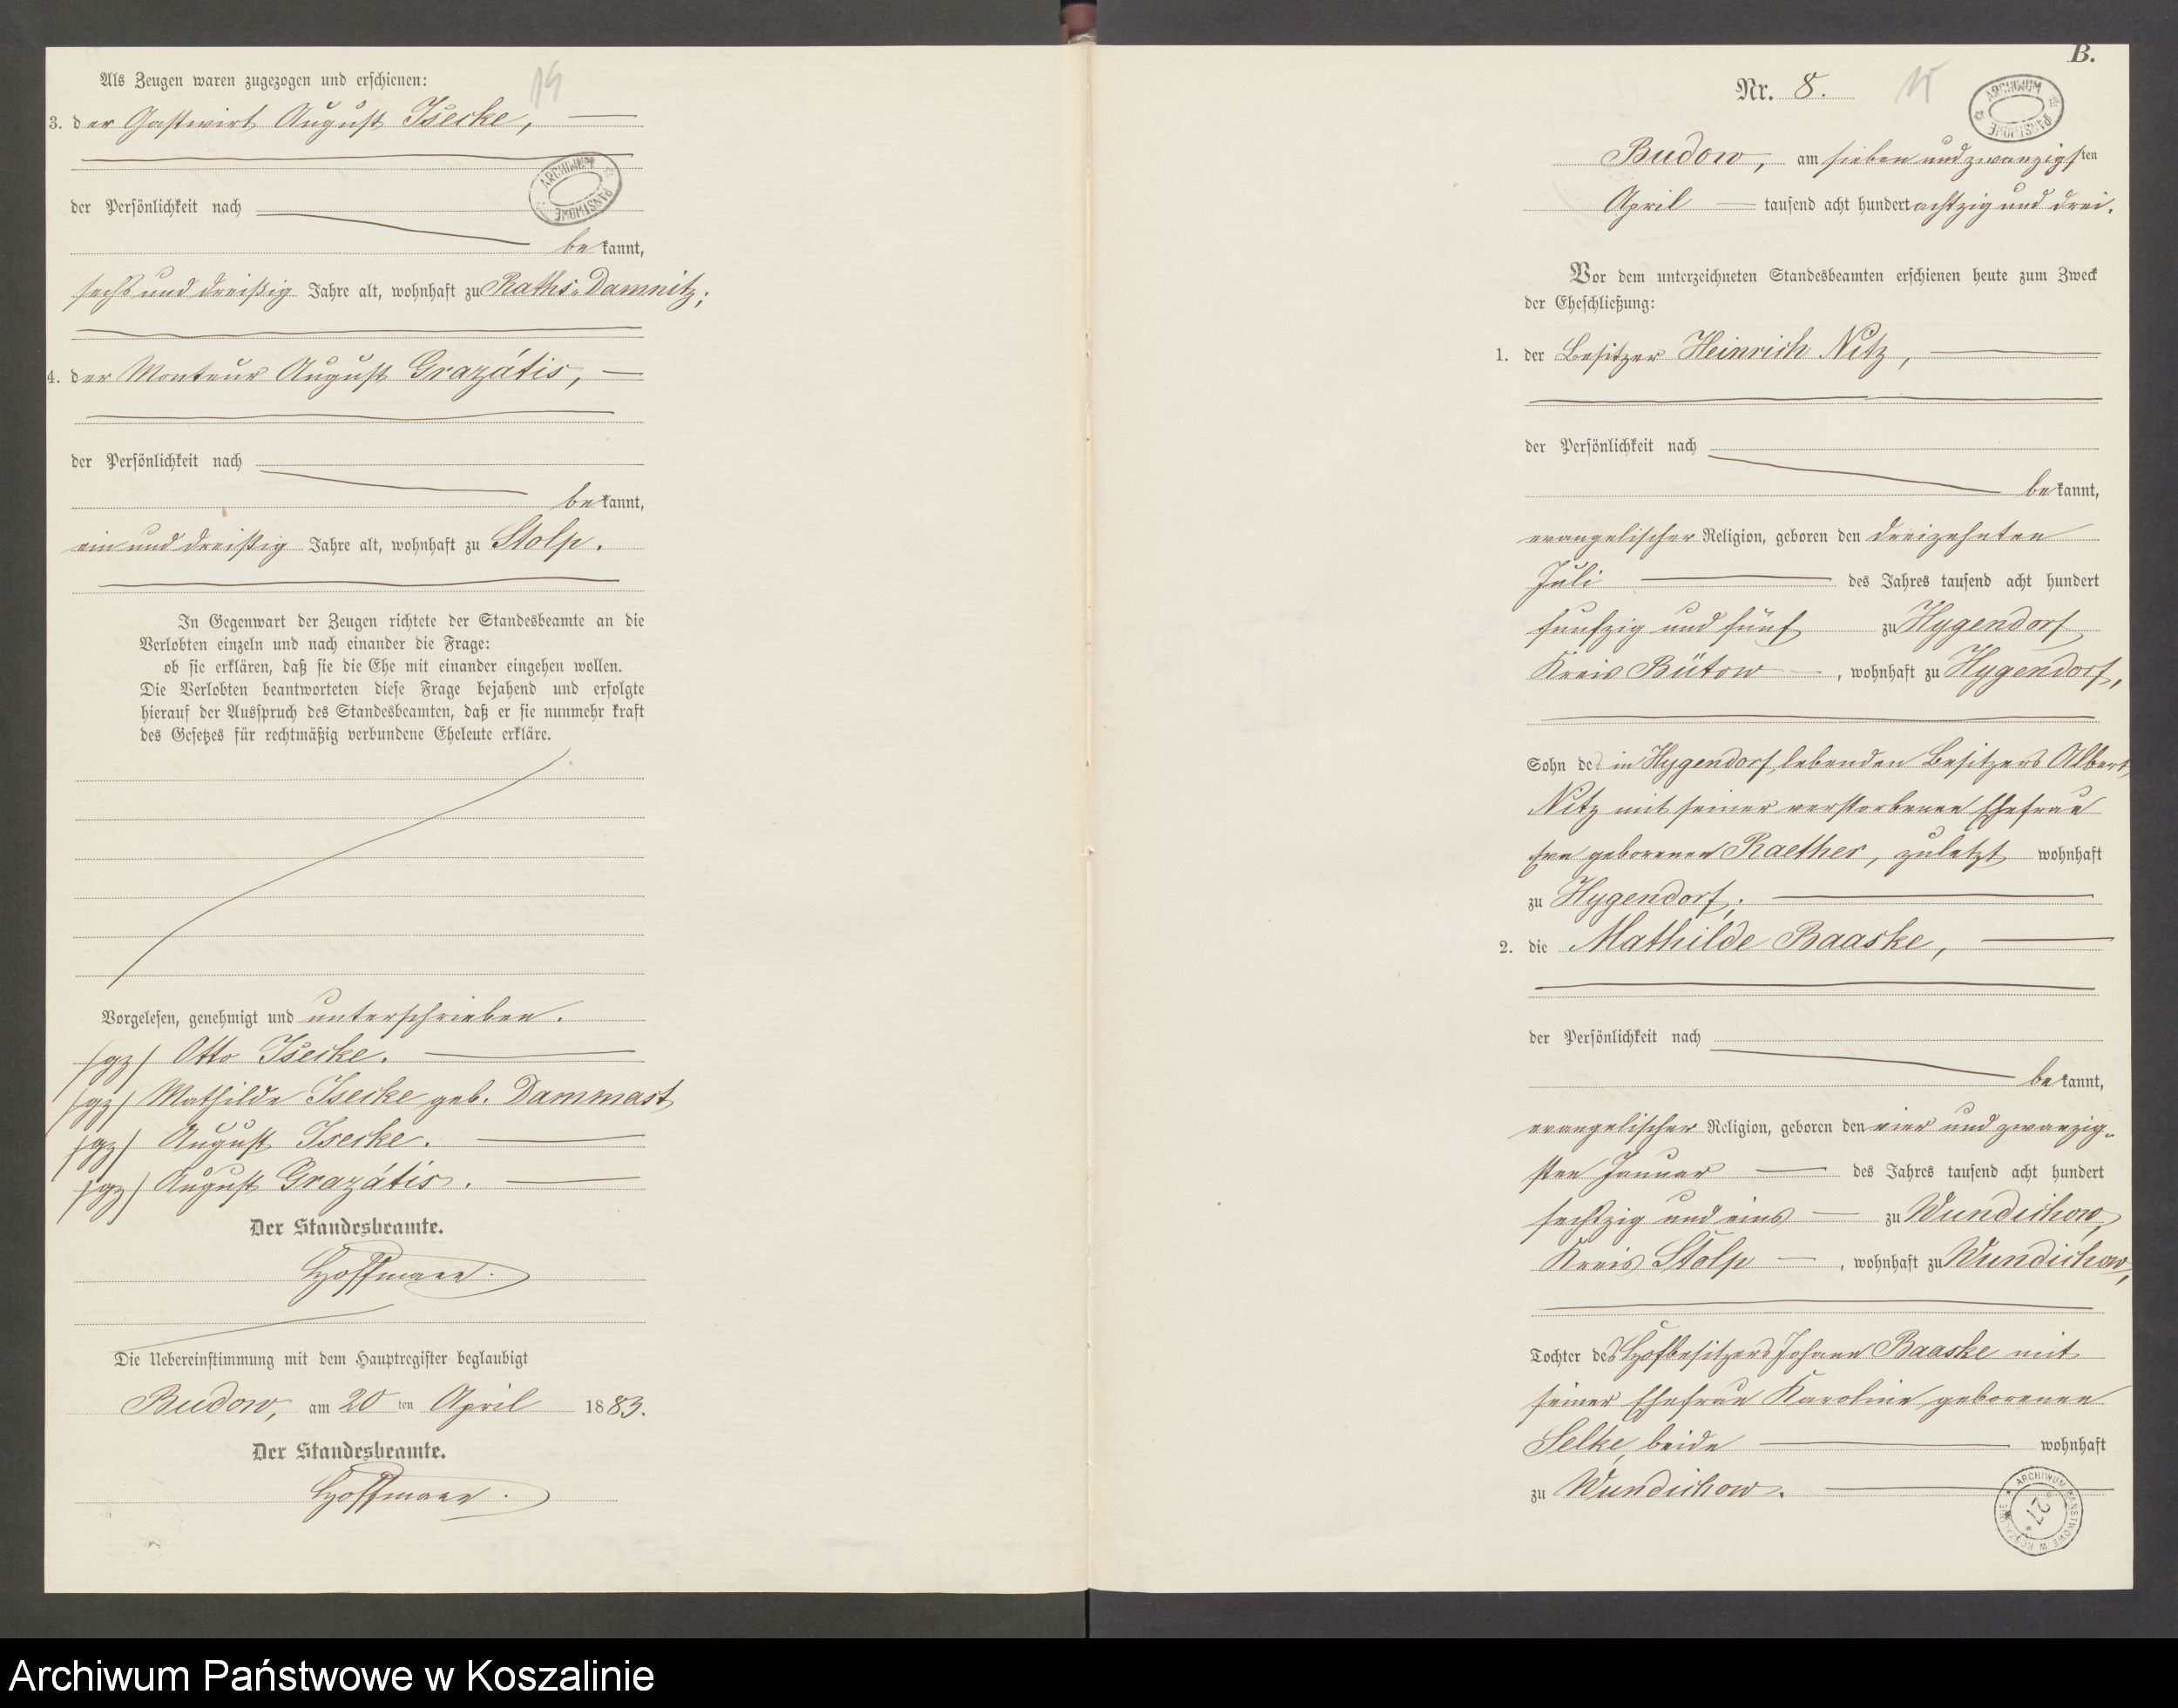 Als Zeugen waren zugezogen und erschienen:
14
3. der Gastwirt August Isecke,
ARCHIWUM PAŃSTWOWE
der Persönlichkeit nach
bekannt,
sechs und dreißig Jahre alt, wohnhaft zu Raths-Damnitz;
4. der Monteur August Grazátis,
der Persönlichkeit nach
bekannt,
ein und dreißig Jahre alt, wohnhaft zu Stolp.
In Gegenwart der Zeugen richtete der Standesbeamte an die
Verlobten einzeln und nach einander die Frage:
ob sie erklären, daß sie die Ehe mit einander eingehen wollen.
Die Verlobten beantworteten diese Frage bejahend und erfolgte
hierauf der Ausspruch des Standesbeamten, daß er sie nunmehr kraft
des Gesetzes für rechtmäßig verbundene Eheleute erkläre.
Vorgelesen, genehmigt und unterschrieben.
/gz/ Otto Isecke.
/gz/ Mathilde Isecke geb. Dammast
/gz/ August Isecke.
/gz/ August Grazátis.
Der Standesbeamte.
Hoffmann.
Die Uebereinstimmung mit dem Hauptregister beglaubigt
Budow, am 20ten April 1883.
Der Standesbeamte.
Hoffmann.
B.
Nr. 8.
15
ARCHIWUM PAŃSTWOWE
Budow, am sieben und zwanzigsten
April tausend acht hundert achtzig und drei.
Vor dem unterzeichneten Standesbeamten erschienen heute zum Zweck
der Eheschließung:
1. der Besitzer Heinrich Nitz,
der Persönlichkeit nach
bekannt,
evangelischer Religion, geboren den dreizehnten
Juli des Jahres tausend acht hundert
funfzig und fünf zu Hygendorf
Kreis Bütow, wohnhaft zu Hygendorf,
Sohn des in Hygendorf lebenden Besitzers Albert
Nitz mit seiner verstorbenen Ehefrau
geborenen Raether, zuletzt wohnhaft
zu Hygendorf;
2. die Mathilde Baaske,
der Persönlichkeit nach
bekannt,
evangelischer Religion, geboren den vier und zwanzig-
sten Januar des Jahres tausend acht hundert
sechszig und eins zu Wundichow,
Kreis Stolp, wohnhaft zu Wundichow,
Tochter des Hofbesitzers Johann Baaske mit
seiner Ehefrau Karoline geborenen
Selke, beide wohnhaft
zu Wundichow.
ARCHIWUM PAŃSTWOWE W KOSZALINIE
* 27 *
Archiwum Państwowe w Koszalinie